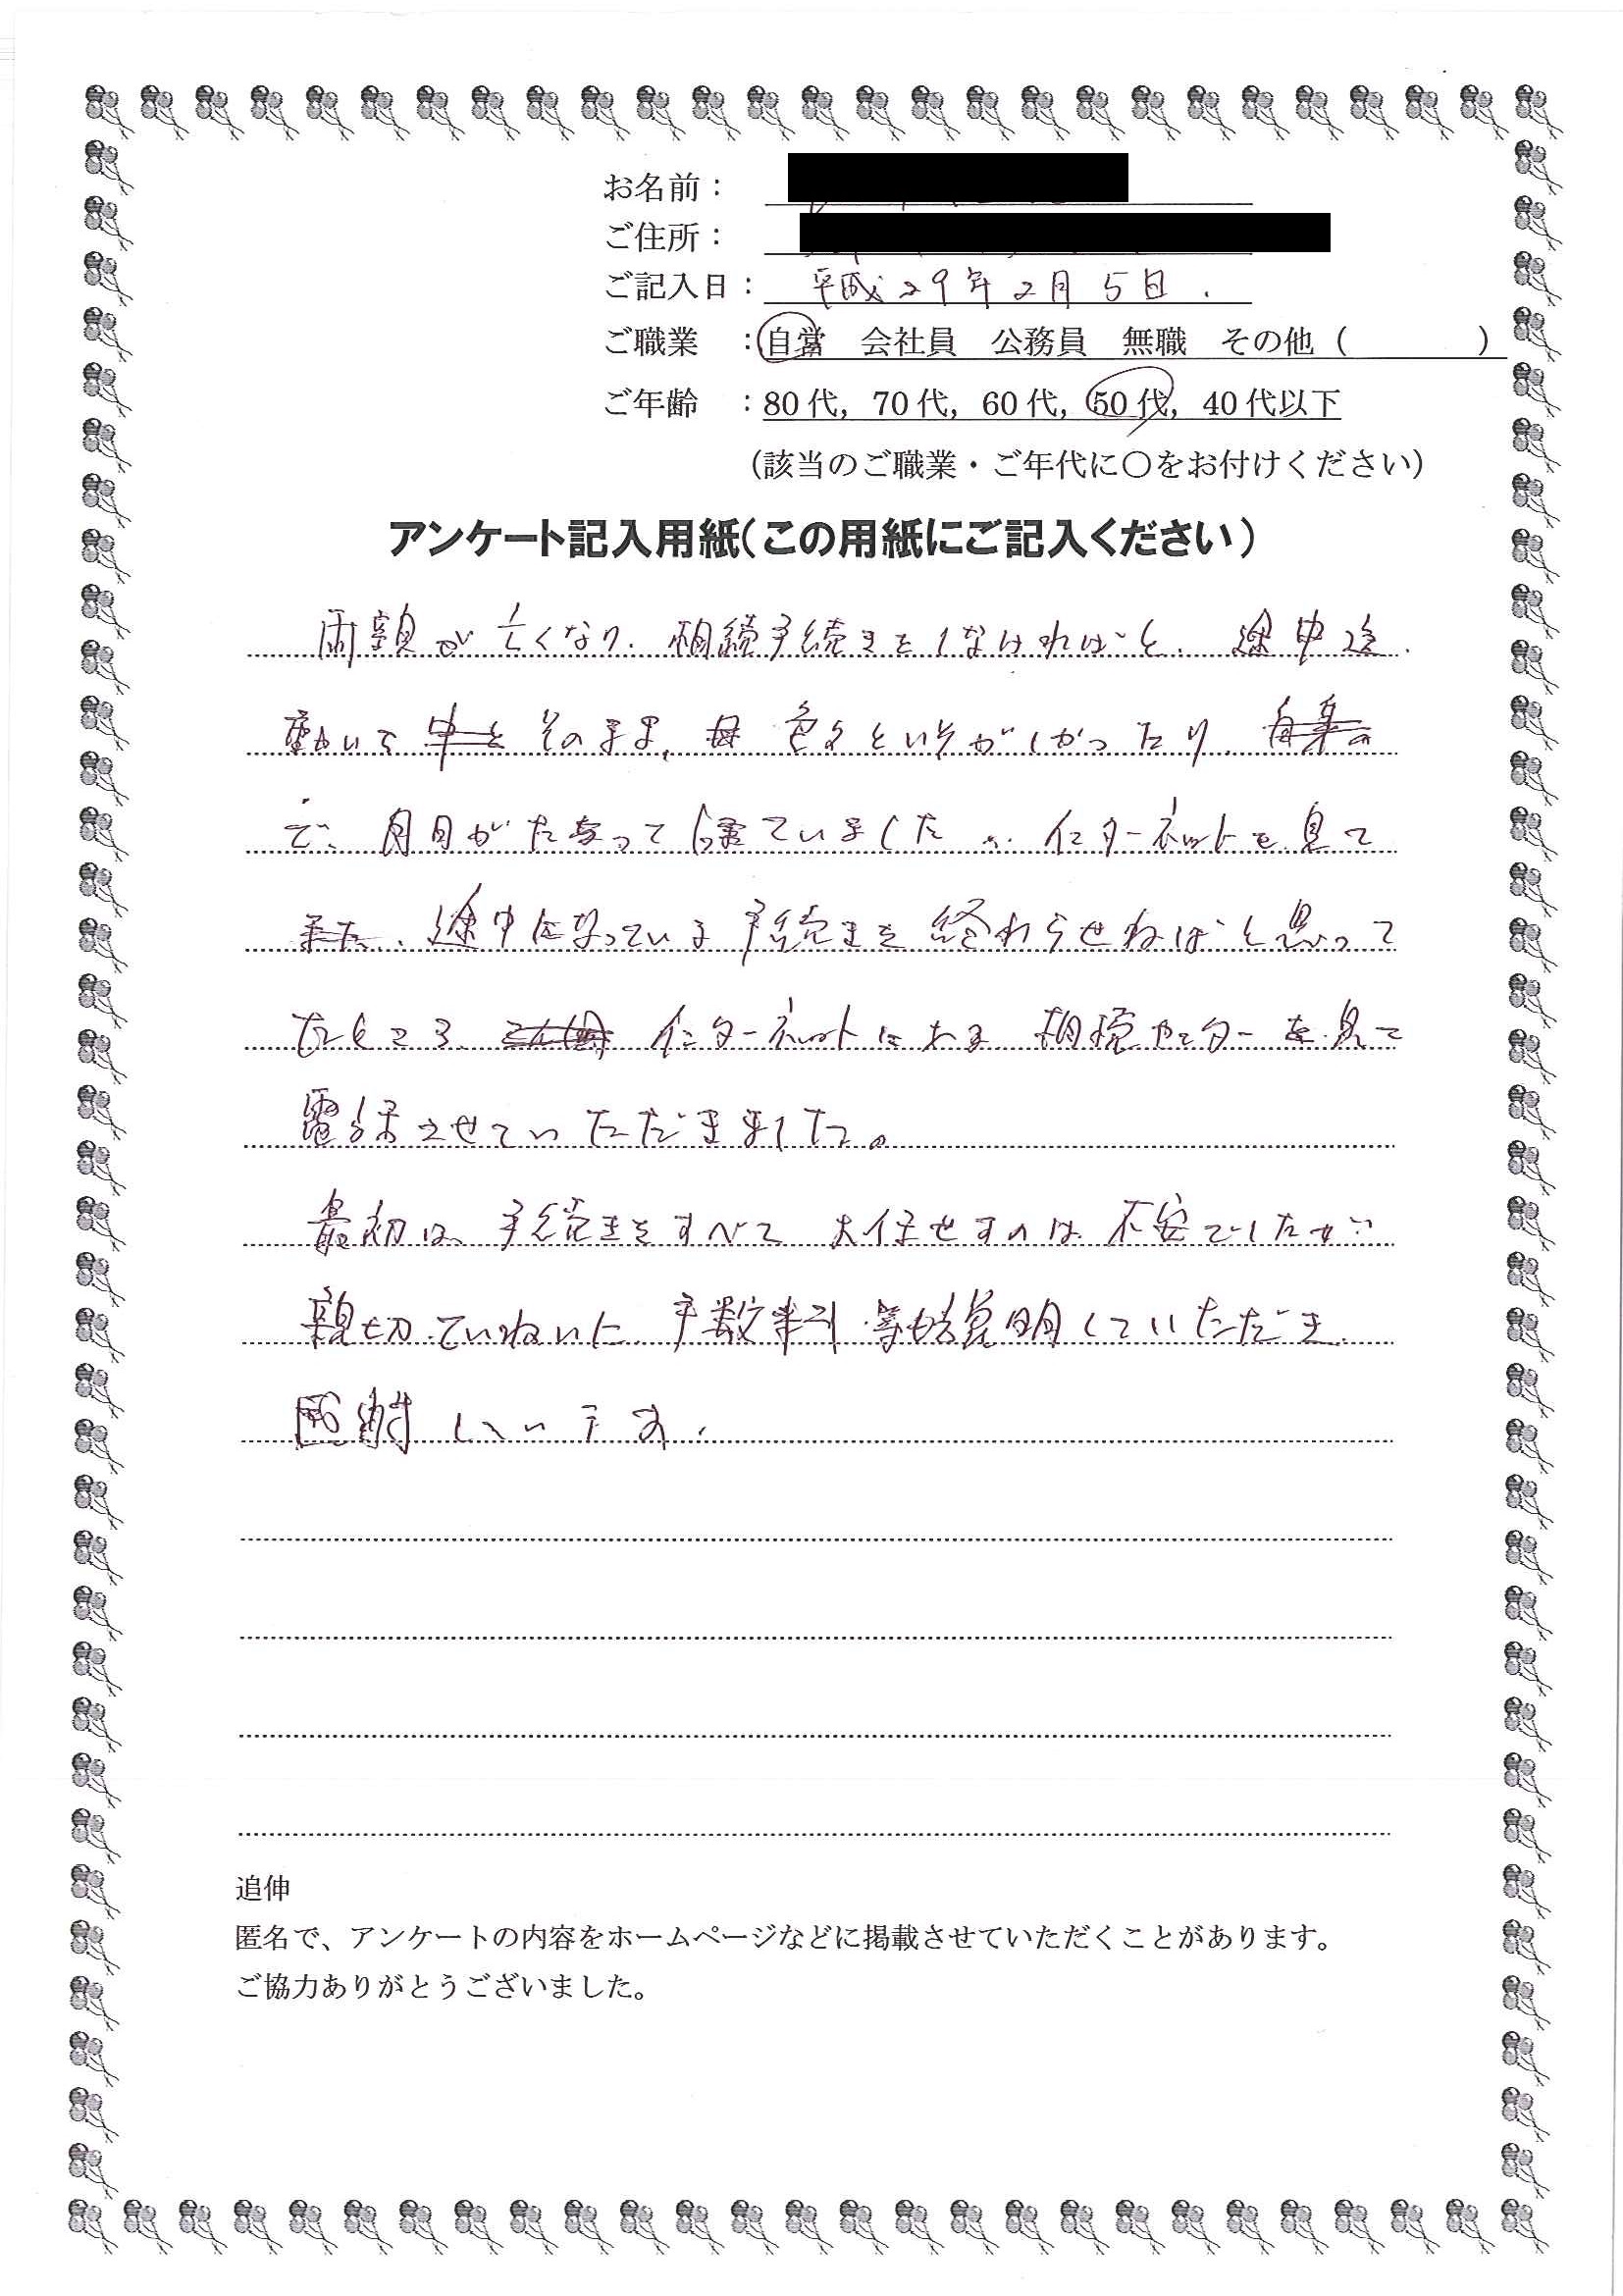 お名前：
ご住所：
ご記入日： 平成29年2月5日.
ご職業 ： 自営 会社員 公務員 無職 その他（ ）
ご年齢 ： 80代，70代，60代，50代，40代以下
（該当のご職業・ご年代に〇をお付けください）
アンケート記入用紙（この用紙にご記入ください）
両親が亡くなり、相続手続きをしなければと、途中迄
動いて そのまま、色々といそがしかったり、
で、月日がたって していました インターネットを見て
途中になっている手続きを終わらせねばと思って
たところ、インターネットにある 相続センターを見て
電話させていただきました。
最初は、手続きをすべて お任せするのは 不安でしたが
親切ていねいに、手数料等も説明していただき
感謝しています.
追伸
匿名で、アンケートの内容をホームページなどに掲載させていただくことがあります。
ご協力ありがとうございました。